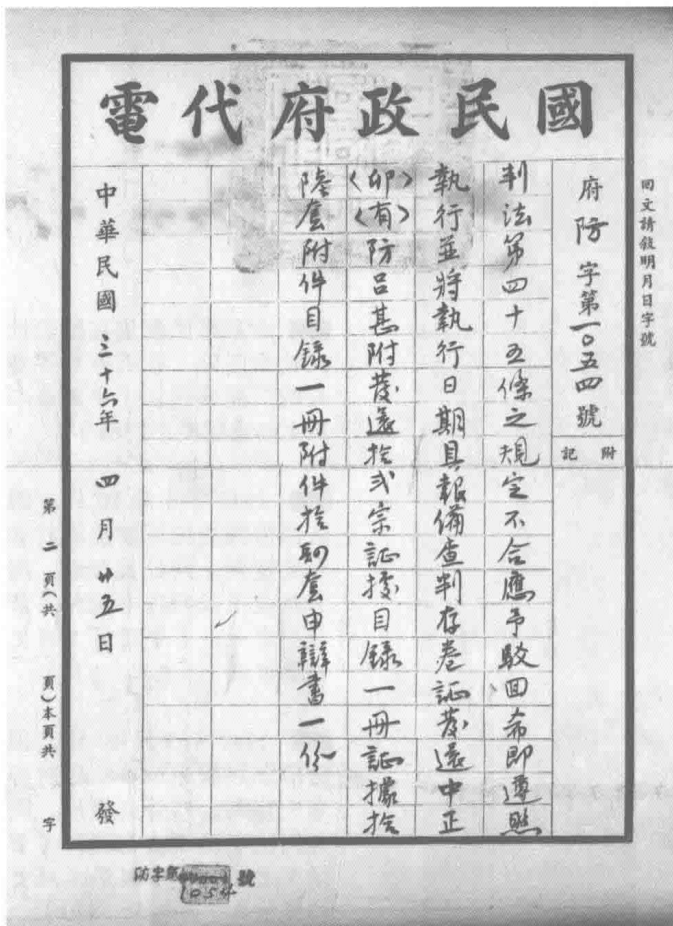 國民政府代電
回文請敘明月日字號
府防字第一〇五四號
附記
判法第四十五條之規定不合應予駁回希即遵照
執行並將執行日期具報備查判存卷証發還中正
（卯）（有）防呂甚附發還拾弍宗証據目錄一冊証據拾
陸套附件目錄一冊附件拾
套申辯書一份
中華民國三十六年四月廿五日發
第二頁（共 頁）本頁共 字
防字第
1054
號